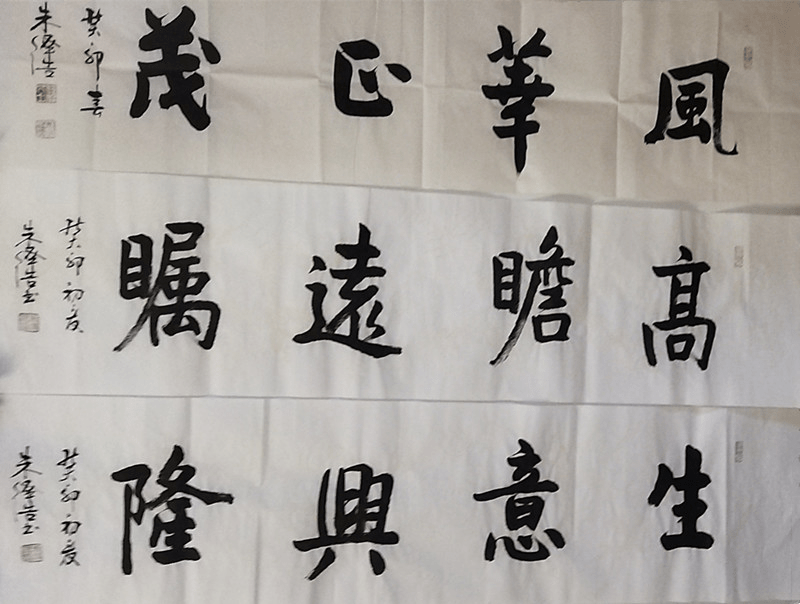 風華正茂
癸卯春
朱
高瞻遠矚
癸卯初夏
朱
生意興隆
癸卯初夏
朱